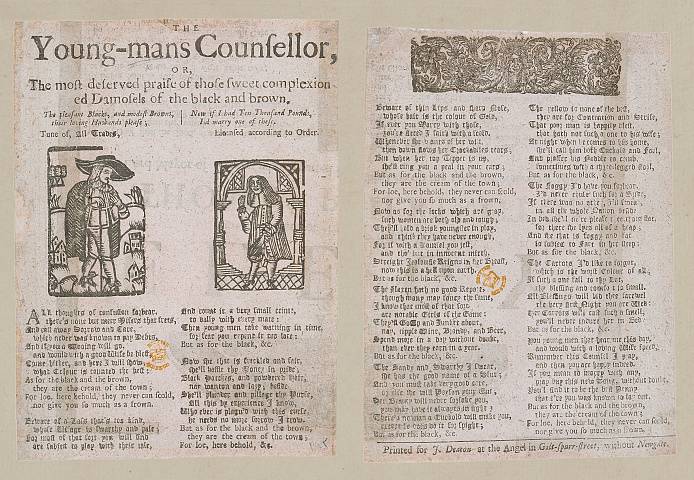 THE
Young-mans Counsellor,
OR,
The most deserved praise of those sweet complexion
ed Damosels of the black and brown.
The pleasant Blacks, and modest Browns,
their loving Husbands please;
Now if I had Ten Thousand Pounds,
I'd marry one of these.
Tune of, All Trades,
Licensed according to Order.
ALL thoughts of confusion forbear,
there's none but meer Misers that frets,
And cast away Sorrow and Care,
which never was known to pay Debts,
And if you a Wooing will go,
and would with a good Wife be blest,
Come hither, and here I will show
what Colour is counted the best:
As for the black and the brown,
they are the cream of the town;
For loe, here behold, they never can scold,
nor give you so much as a frown.
Beware of a Lass that's too kind,
whose Visage is Swarthy and pale;
For most of that sort you will find
are subject to play with their tale,
And count it a very small crime,
to dally with every mate:
Then young men take warning in time,
for fear you repent it too late:
But as for the black, &c.
Now she that is freckled and fair,
she'll waste thy Money in pride;
Black patches, and powdered hair,
nay wanton and lazy beside:
She'll plunder and pillage thy Purse,
All this by experience I know,
Who ever is plagu'd with this curse,
he needs no more sorrow I trow.
But as for the black and the brown,
they are the cream of the town;
For loe, here behold, &c.
Beware of thin Lips and sharp Nose,
whose hair is the colour of Gold,
If ever you Marry with those,
you're sure to be with a scold.
Whenever she wants of her will,
then down flows her Crocodiles tears;
But when her top Tipper is up,
she'll ring you a peal in your ears;
But as for the black and the brown,
they are the cream of the town;
For loe, here behold, they never can scold,
nor give you so much as a frown.
Now as for the locks which are gray,
such women are both old and tough;
They'll lead a brisk youngster in play,
and think they have never enough,
For if with a Damsel you jest,
and tho' but in innocent mirth,
Streight Jealousie Reigns in her Breast,
now this is a hell upon earth.
But as for the black, &c.
The Flaxen hath no good Report,
though many may fancy the same,
I know that most of that sort
are notable Girls of the Game:
nay, tipple Wine, Brandy, and Beer,
Spend more in a day without doubt,
than ever they earn in a year.
But as for the black, &c.
The Sandy and Swarthy I swear,
she has the good name of a Slut;
And you must take very good care,
Her Dowry will never forsake you,
you may have it always in sight;
But as for the black, &c.
The yellow is none of the best,
they are for Contention and Strife,
That poor man is happily blest,
that hath not such a one to his wife;
At night when he comes to his home,
she'll call him both Cuckold and Fool,
And picking his Noddle to comb,
sometimes with a three-legged stool,
But as for the black, &c.
The Saggy I'd have you forbear,
I'd never make such for a Bride;
If there was no more, I'll swear,
in all the whole Nation beside
so subject to Fart in her sleep:
But as for the black, &c.
The Carrots I'd like to forgot,
which is the worst Colour of all,
If such a one fall to thy Lot,
thy blessing and comfort is small.
All Blessings will bid thee farewel
the very first Night you are Wed:
Her Carrots will cast such a smell,
you'll never endure her in Bed:
But as for the black, &c.
You young men that hear me this day,
and would with a loving Wife speed,
Remember this Council I pray,
and then you are happy indeed.
If you mean to marry with any,
pray buy this new Song, without doubt,
You'l find it to be the best Penny
that e're you was known to lay out.
But as for the black and the brown,
they are the cream of the town;
For loe, here behold, they never can scold,
nor give you so much as a frown.
Printed for J. Deacon at the Angel in Gilt-spurr-street, without Newgate.